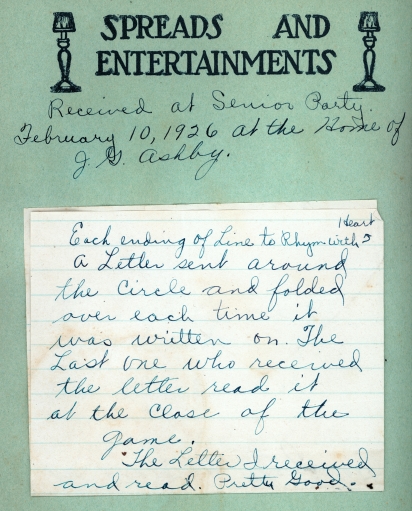 SPREADS AND
ENTERTAINMENTS
Received at Senior Party.
February 10, 1926 at the Home of
J. G. Ashby.
Heart
Each ending of Line to Rhym with
A Letter sent around
the Circle and folded
over each time it
was written on. The
Last one who received
the letter read it
at the close of the
game.
The Letter I received
and read. Pretty Good.